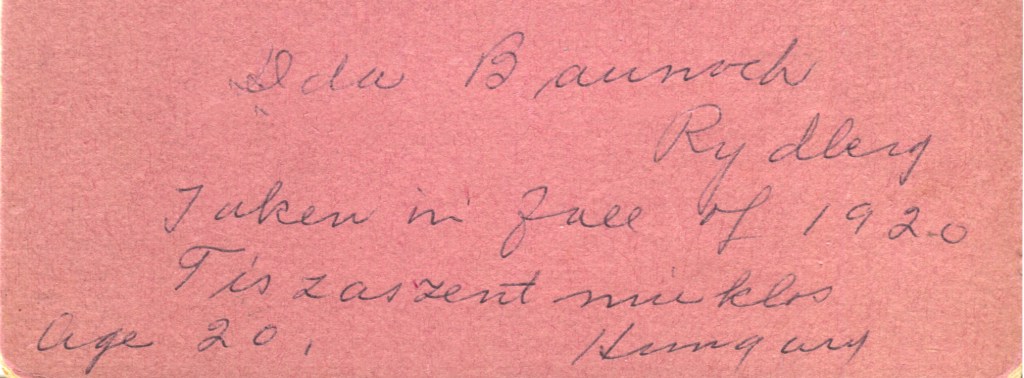 Ida Baunoch
Rydberg
Taken in fall of 1920
Tiszaszentmiklos
Age 20, Hungary